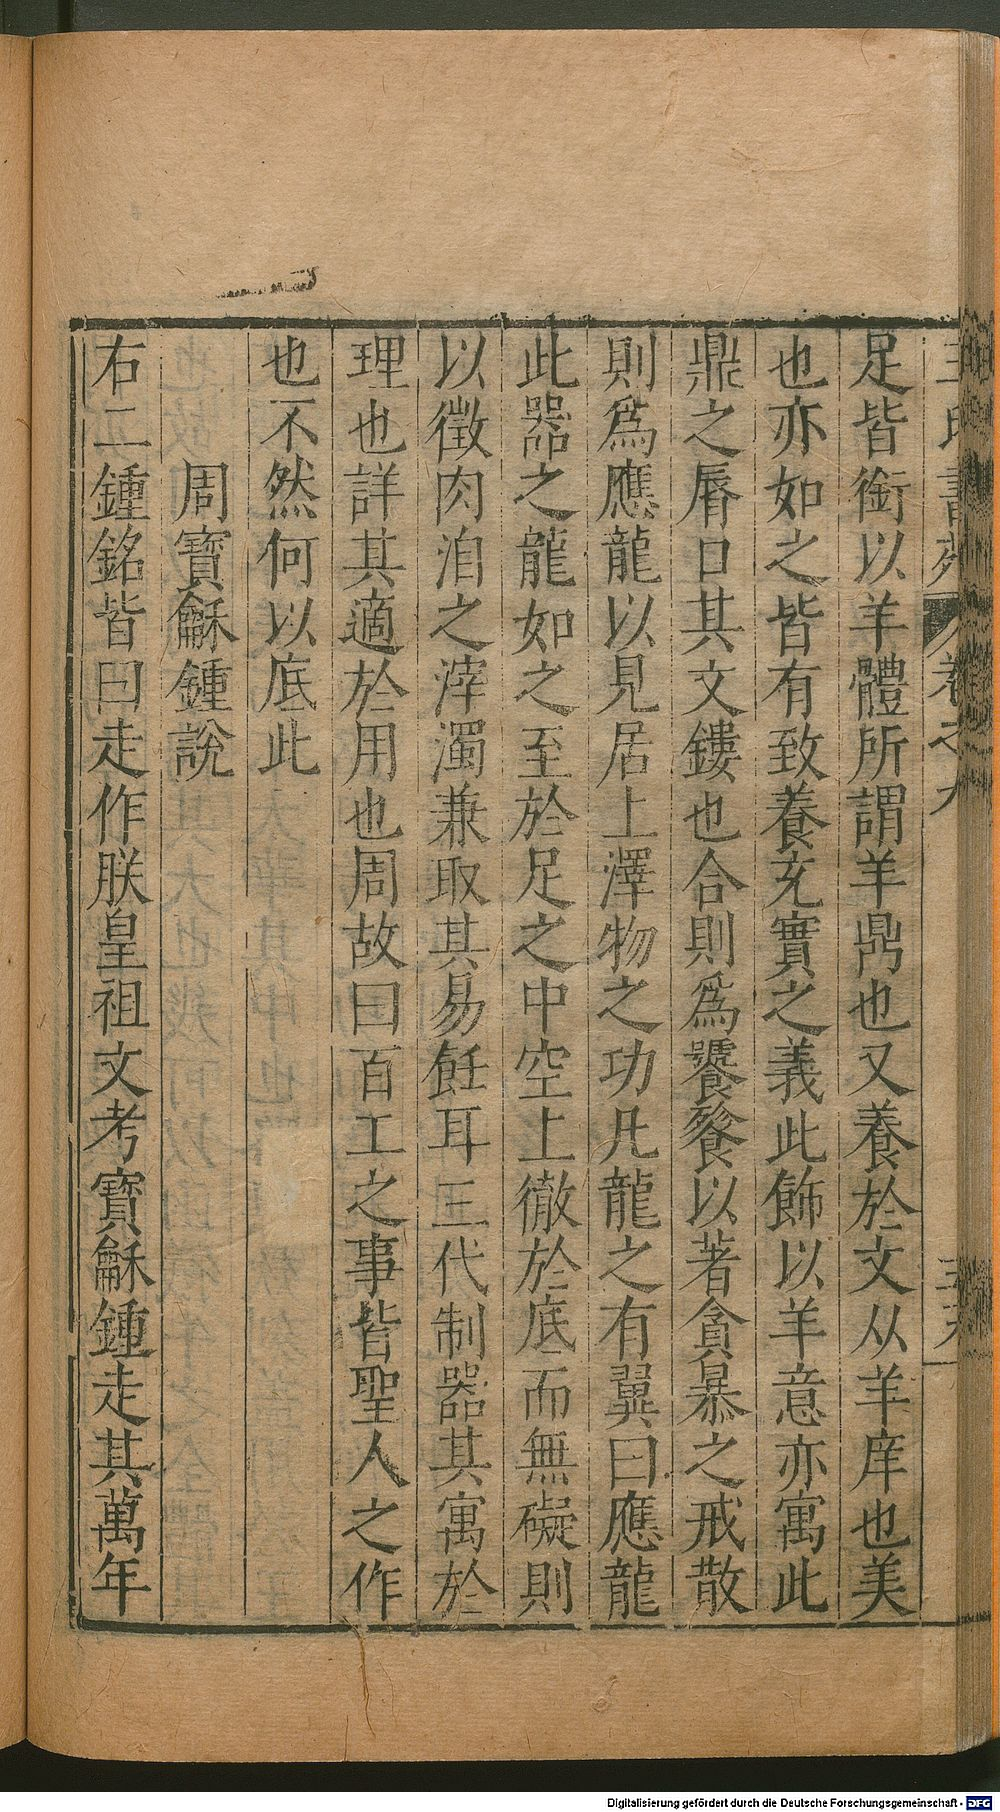 足皆銜以羊體所謂羊鼎也又養於文从羊庠也美
也亦如之皆有致養充實之義此飾以羊意亦寓此
鼎之脣口其文鏤也合則爲饕餮以著貪暴之戒散
則爲應龍以見居上澤物之功凡龍之有翼曰應龍
此器之龍如之至於足之中空上徹於底而無礙則
以徵肉洎之滓濁兼取其易飪耳三代制器其寓於
理也詳其適於用也周故曰百工之事皆聖人之作
也不然何以底此
周寶龢鍾說
右二鍾銘皆曰走作朕皇祖文考寶龢鍾走其萬年
Digitalisierung gefördert durch die Deutsche Forschungsgemeinschaft - DFG